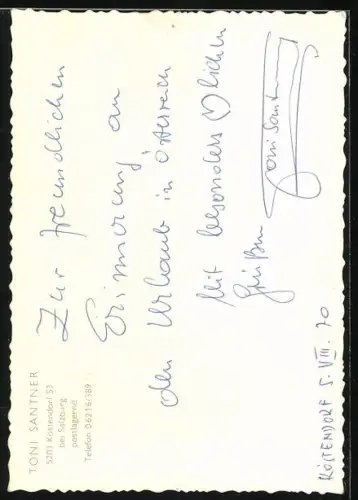 TONI SANTNER
5203 Köstendorf 53
bei Salzburg
postlagernd
Telefon 06216/389
Zur freundlichen
Erinnerung an
den Urlaub in Österreich
Mit besonders ♡lichen
Grüßen
Toni Santner
KÖSTENDORF 5. VIII. 70